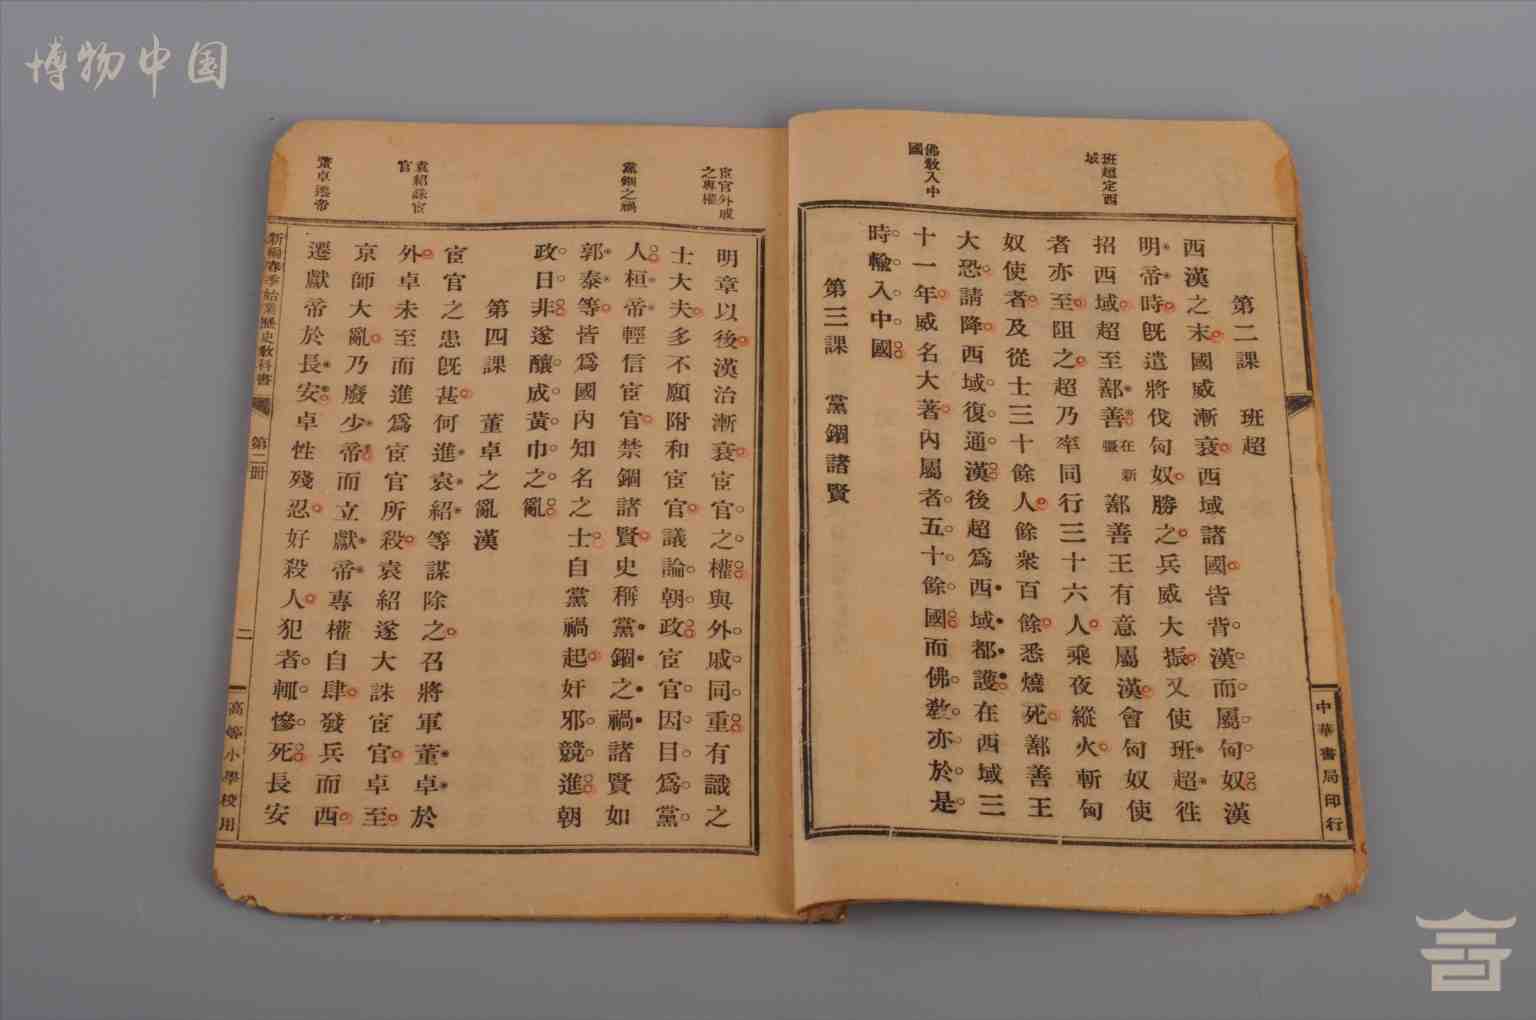 博物中国
班超定西
域
佛教入中
國
第二課　班超
西漢之末國威漸衰西域諸國皆背漢而屬匈奴漢
明帝時旣遣將伐匈奴勝之兵威大振又使班超徃
招西域超至鄯善在新疆鄯善王有意屬漢會匈奴使
者亦至阻之超乃率同行三十六人乘夜縱火斬匈
奴使者及從士三十餘人餘衆百餘悉燒死鄯善王
大恐請降西域復通漢後超爲西域都護在西域三
十一年威名大著內屬者五十餘國而佛敎亦於是
時輸入中國
第三課　黨錮諸賢
中華書局印行
宦官外戚
之專權
黨錮之禍
袁紹誅宦
官
董卓遷帝
明章以後漢治漸衰宦官之權與外戚同重有識之
士大夫多不願附和宦官議論朝政宦官因目爲黨
人桓帝輕信宦官禁錮諸賢史稱黨錮之禍諸賢如
郭泰等皆爲國內知名之士自黨禍起奸邪競進朝
政日非遂釀成黃巾之亂
第四課　董卓之亂漢
宦官之患旣甚何進袁紹等謀除之召將軍董卓於
外卓未至而進爲宦官所殺袁紹遂大誅宦官卓至
京師大亂乃廢少帝而立獻帝專權自肆發兵而西
遷獻帝於長安卓性殘忍好殺人犯者輒慘死長安
新編春季始業歷史敎科書　第二冊　二　高等小學校用